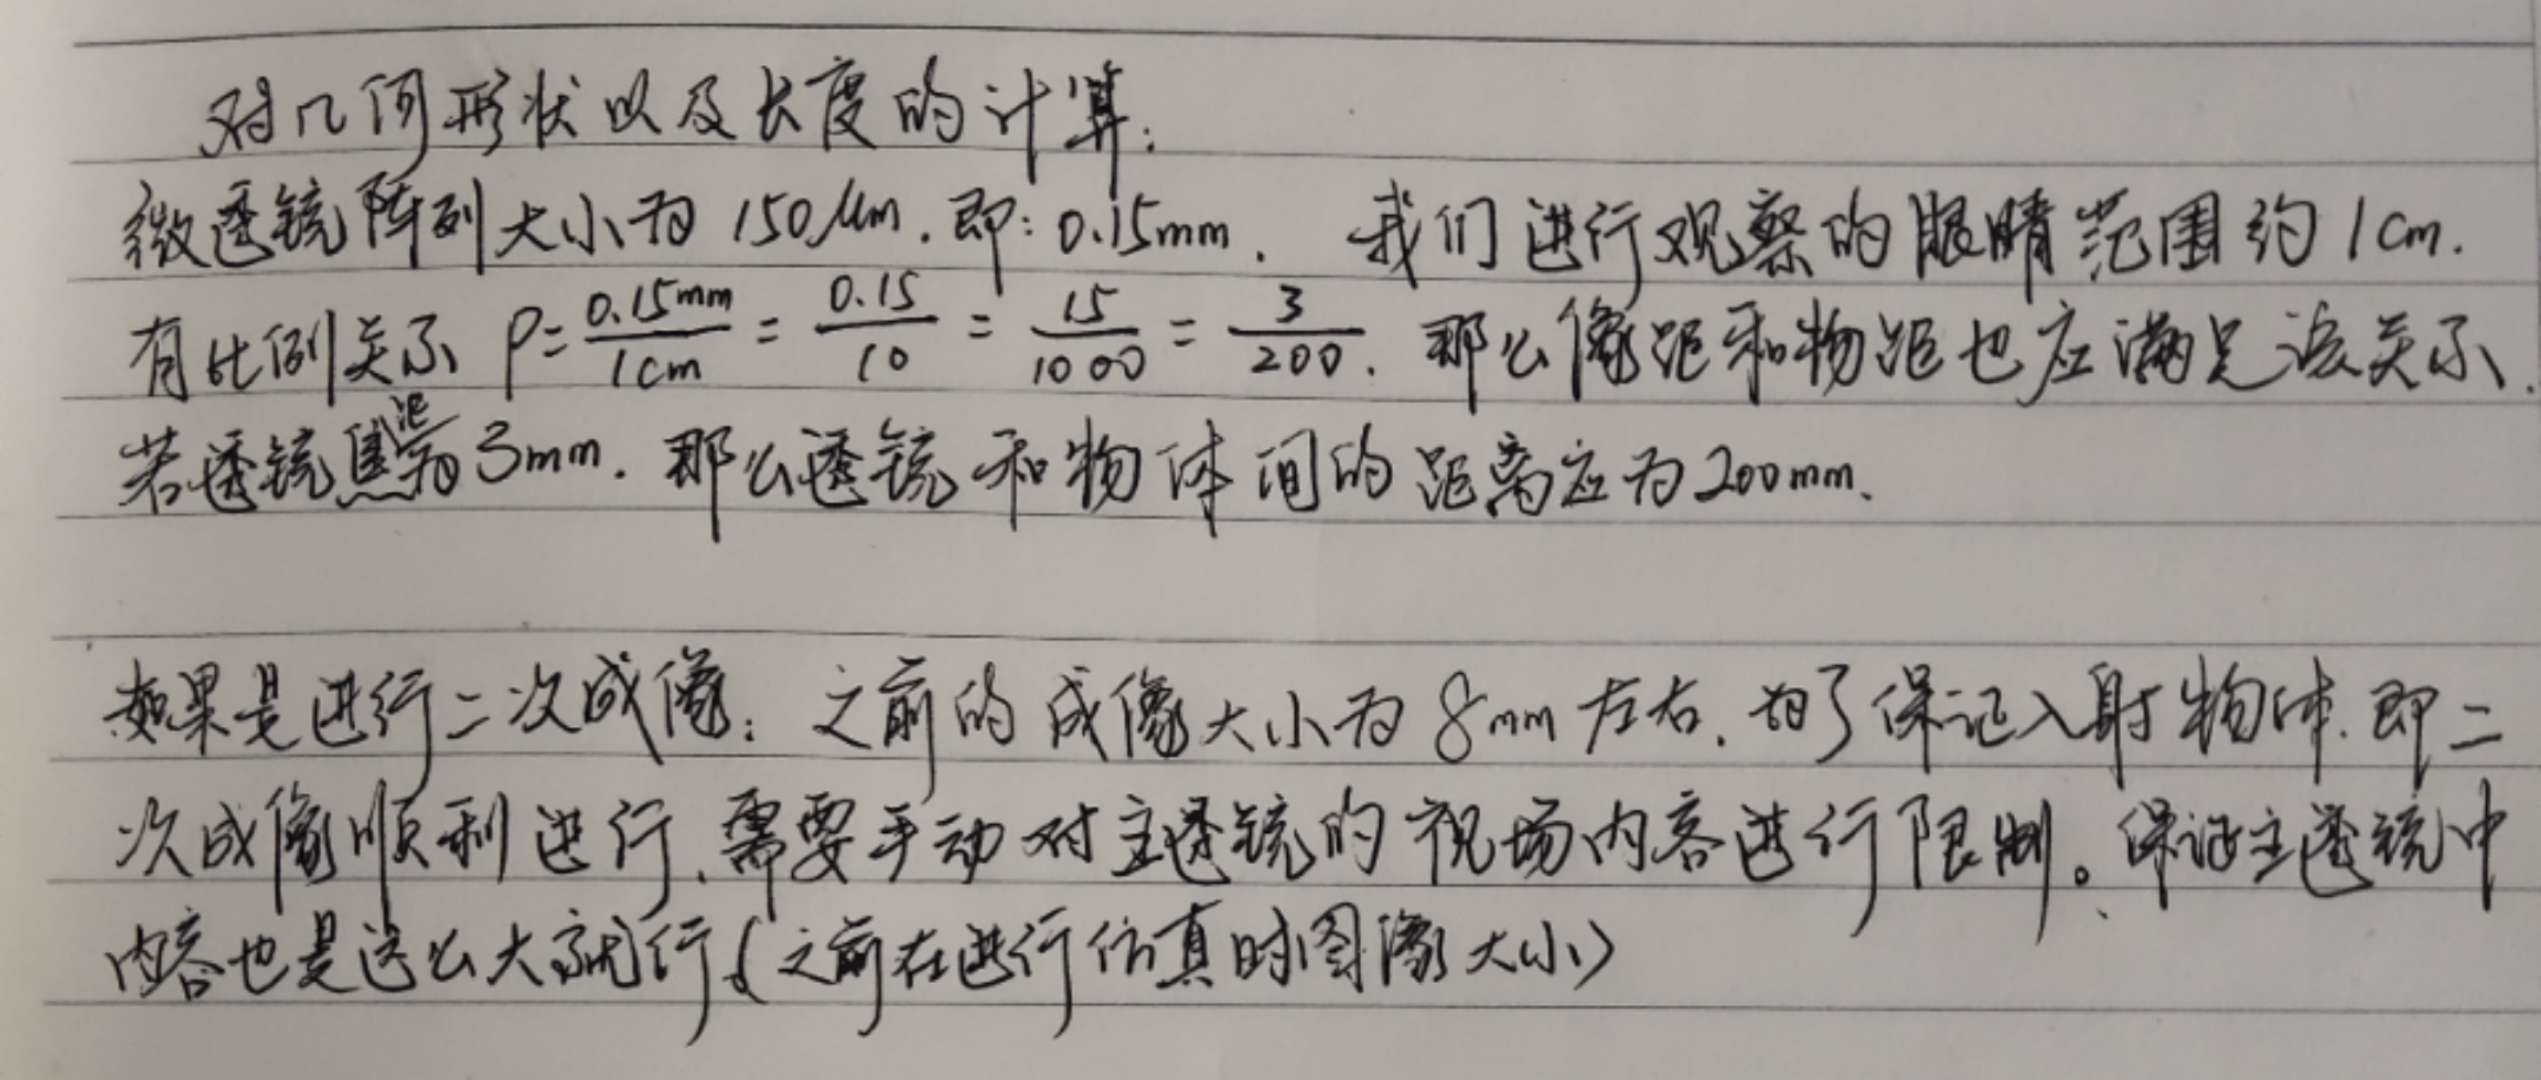 对几何形状以及长度的计算:
微透镜阵列大小为 150μm. 即: 0.15mm. 我们进行观察的眼睛范围约 1cm.
有比例关系 P = 0.15mm/1cm = 0.15/10 = 15/1000 = 3/200. 那么像距和物距也应满足该关系.
若透镜焦距为3mm. 那么透镜和物体间的距离应为200mm.
如果是进行二次成像: 之前的成像大小为 8mm 左右. 为了保证入射物体. 即二
次成像顺利进行. 需要手动对主透镜的视场内容进行限制。保证主透镜中
内容也是这么大就行. (之前在进行仿真时图像大小)